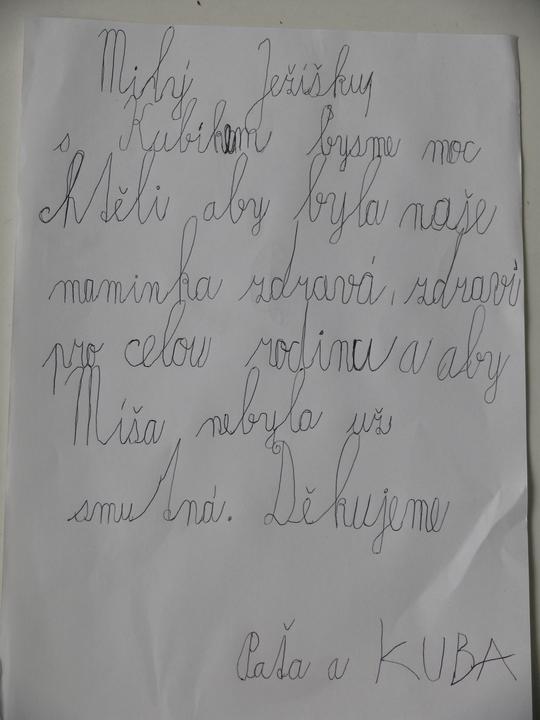 Milý Ježíšku,
s Kubíkem bysme moc
chtěli aby byla naše
maminka zdravá, zdraví
pro celou rodinu a aby
Míša nebyla už
smutná. Děkujeme
Paťa a KUBA